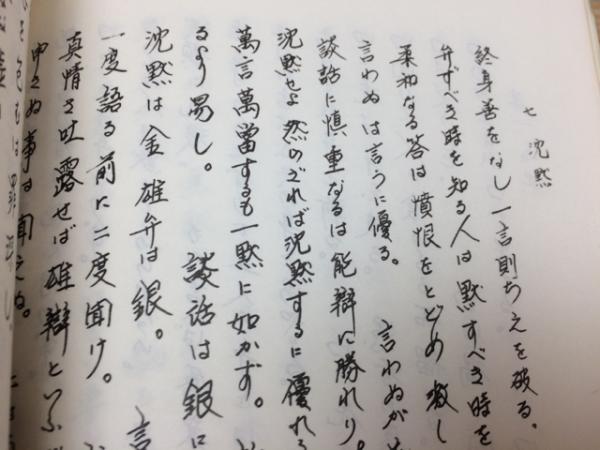 七 沈黙
終身善をなし一言則ちえを破る。
弁すべき時を知る人は黙すべき時を
柔和なる答は憤恨をとどめ
言わぬは言うに優る。 言わぬが
談話に慎重なるは能辯に勝れり。
沈黙せよ然のざれば沈黙するに優れる
萬言萬當するも一黙に如かず。
るより易し。 談話は銀に
沈黙は金 雄弁は銀。 言
一度語る前に二度聞け。
真情を吐露せば雄辯といふ
申さぬ事は聞えぬ。